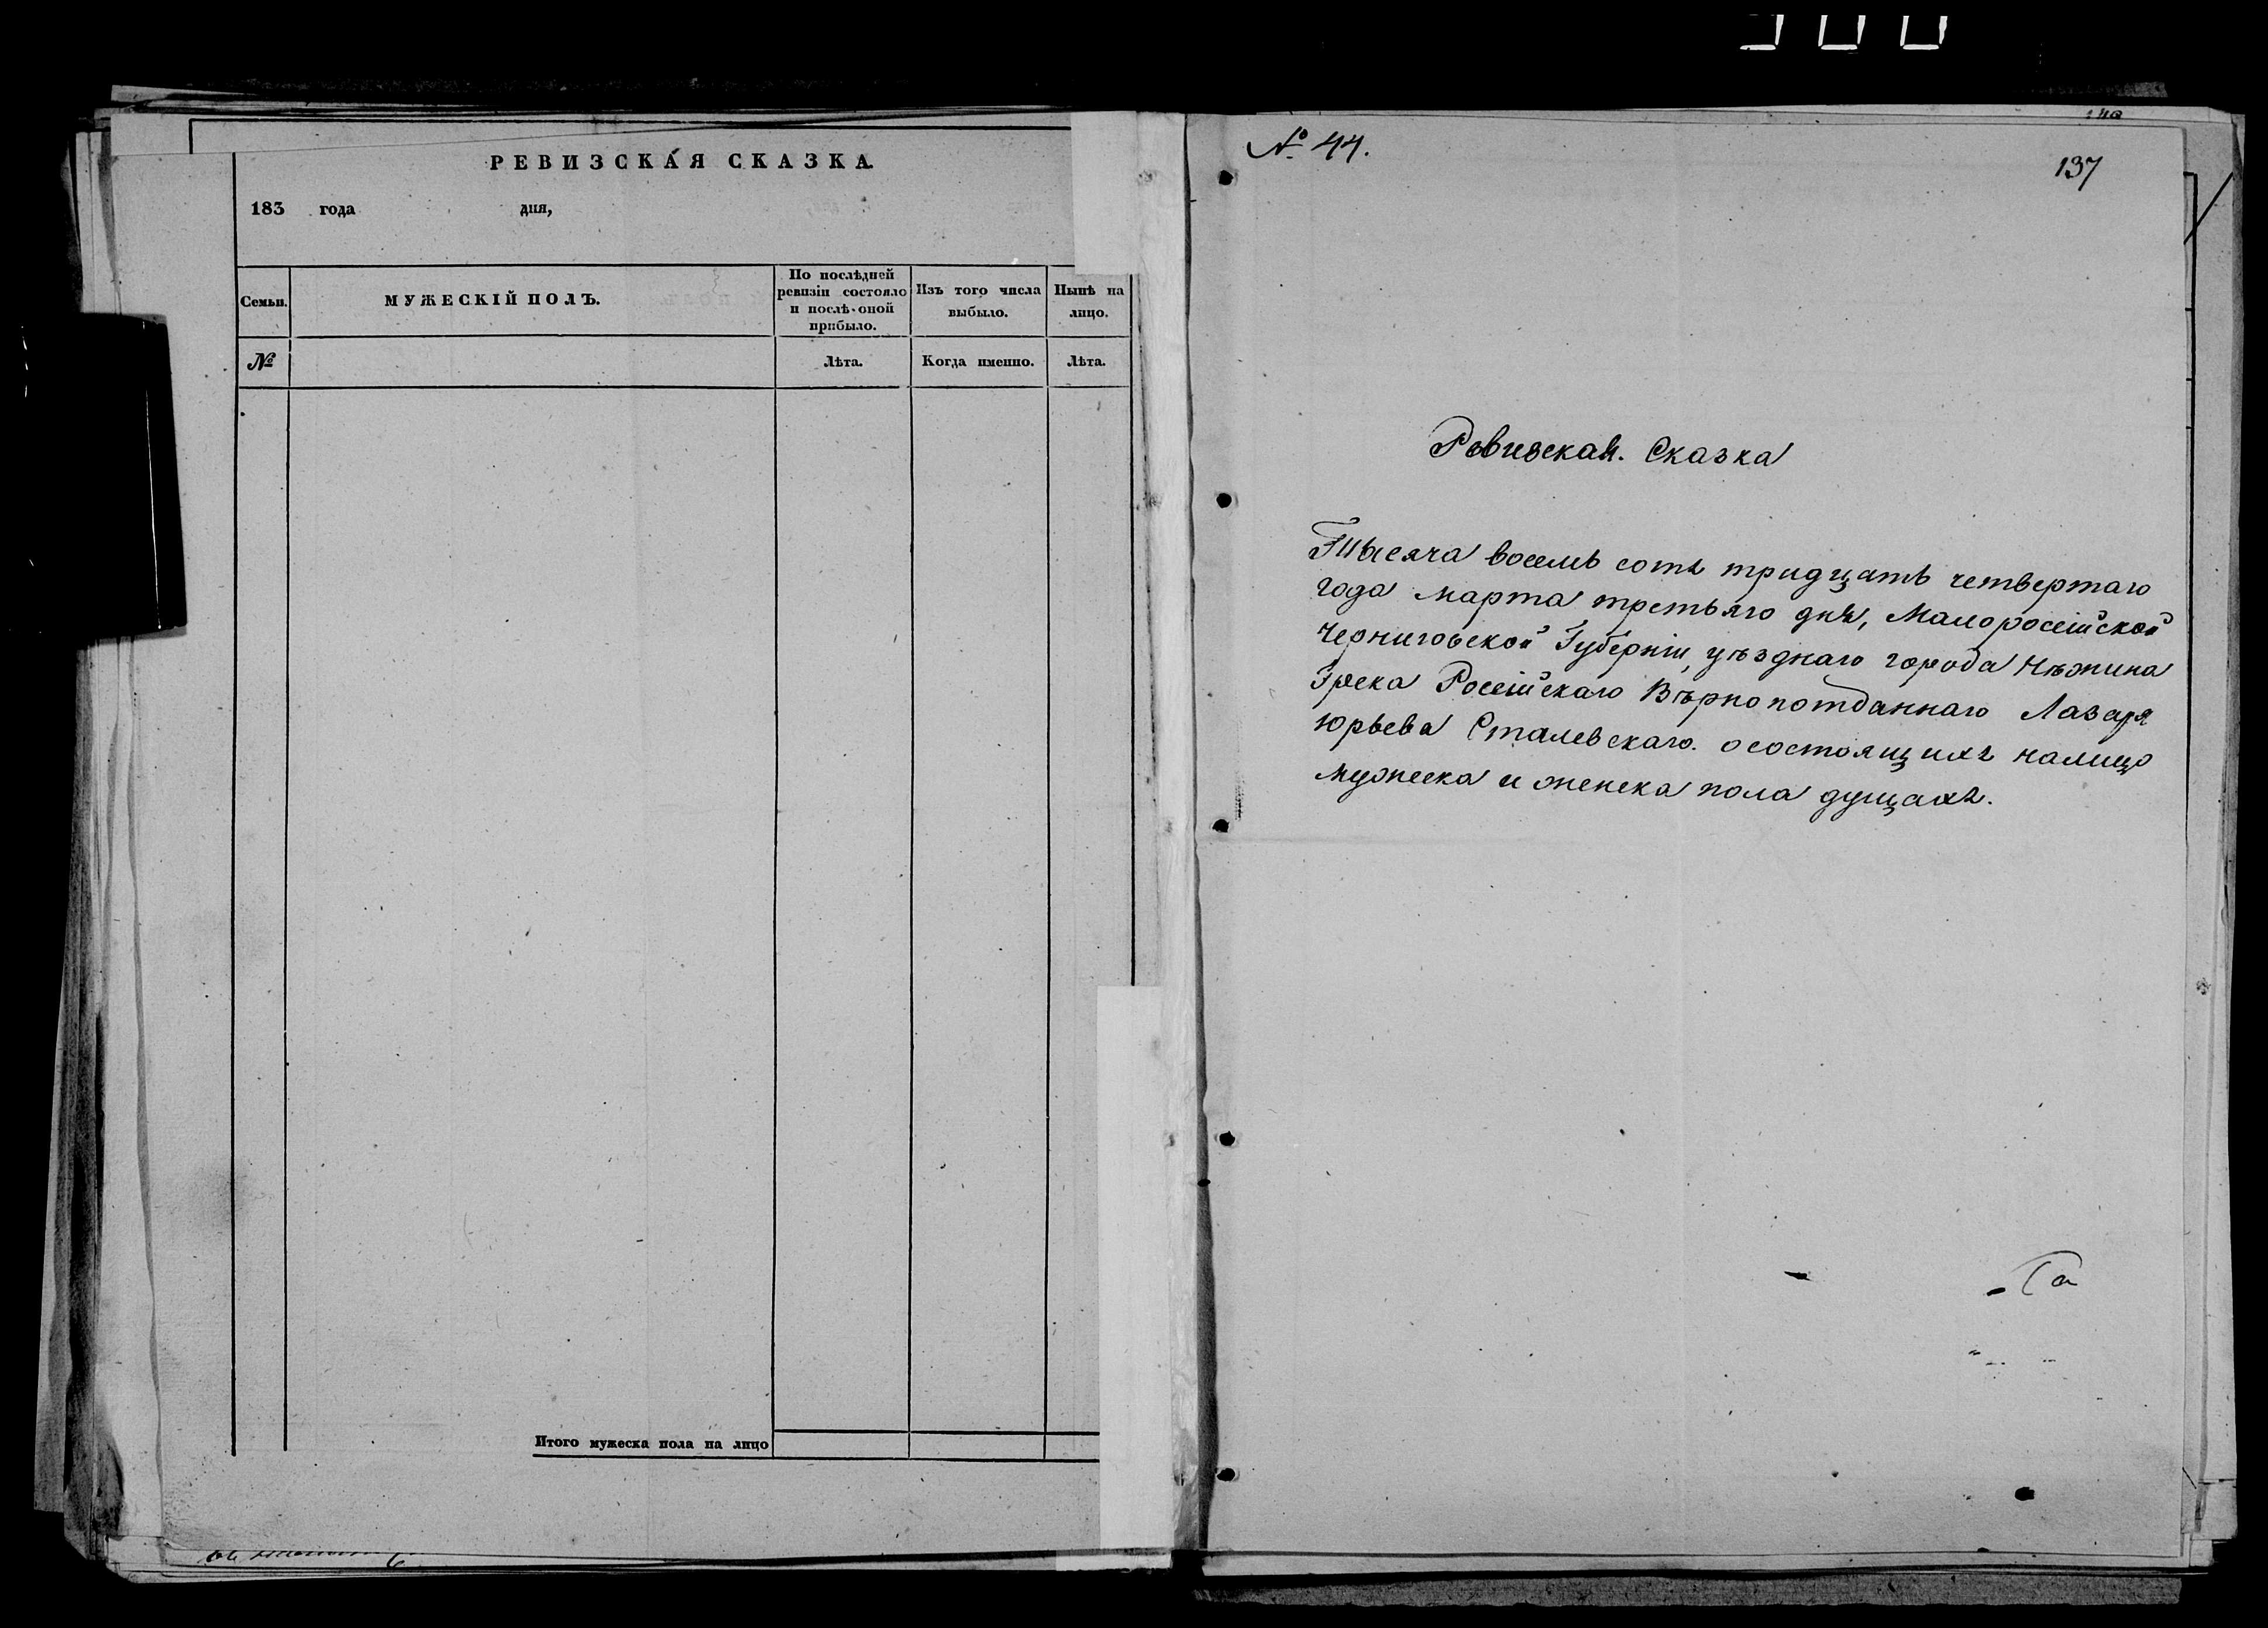 РЕВИЗСКАЯ СКАЗКА.
183 года дня,
Семьи.
МУЖЕСКІЙ ПОЛЪ.
По послѣдней
ревизіи состояло
и послѣ оной
прибыло.
Изъ того числа
выбыло.
Нынѣ на
лицо.
№
Лѣта.
Когда именно.
Лѣта.
Итого мужеска пола на лицо
№ 44.
137
Ревизская. Сказка
Тысяча восемь сотъ тридцать четвертаго
года марта третьяго дня, Малоросейской
Черниговской Губерніи, уѣзднаго города Нѣжина
Грека Росейскаго Вѣрнопотданнаго Лазаря
Юрьева Сталевскаго. осостоящихъ налицо
мужеска и женска пола дущахъ.